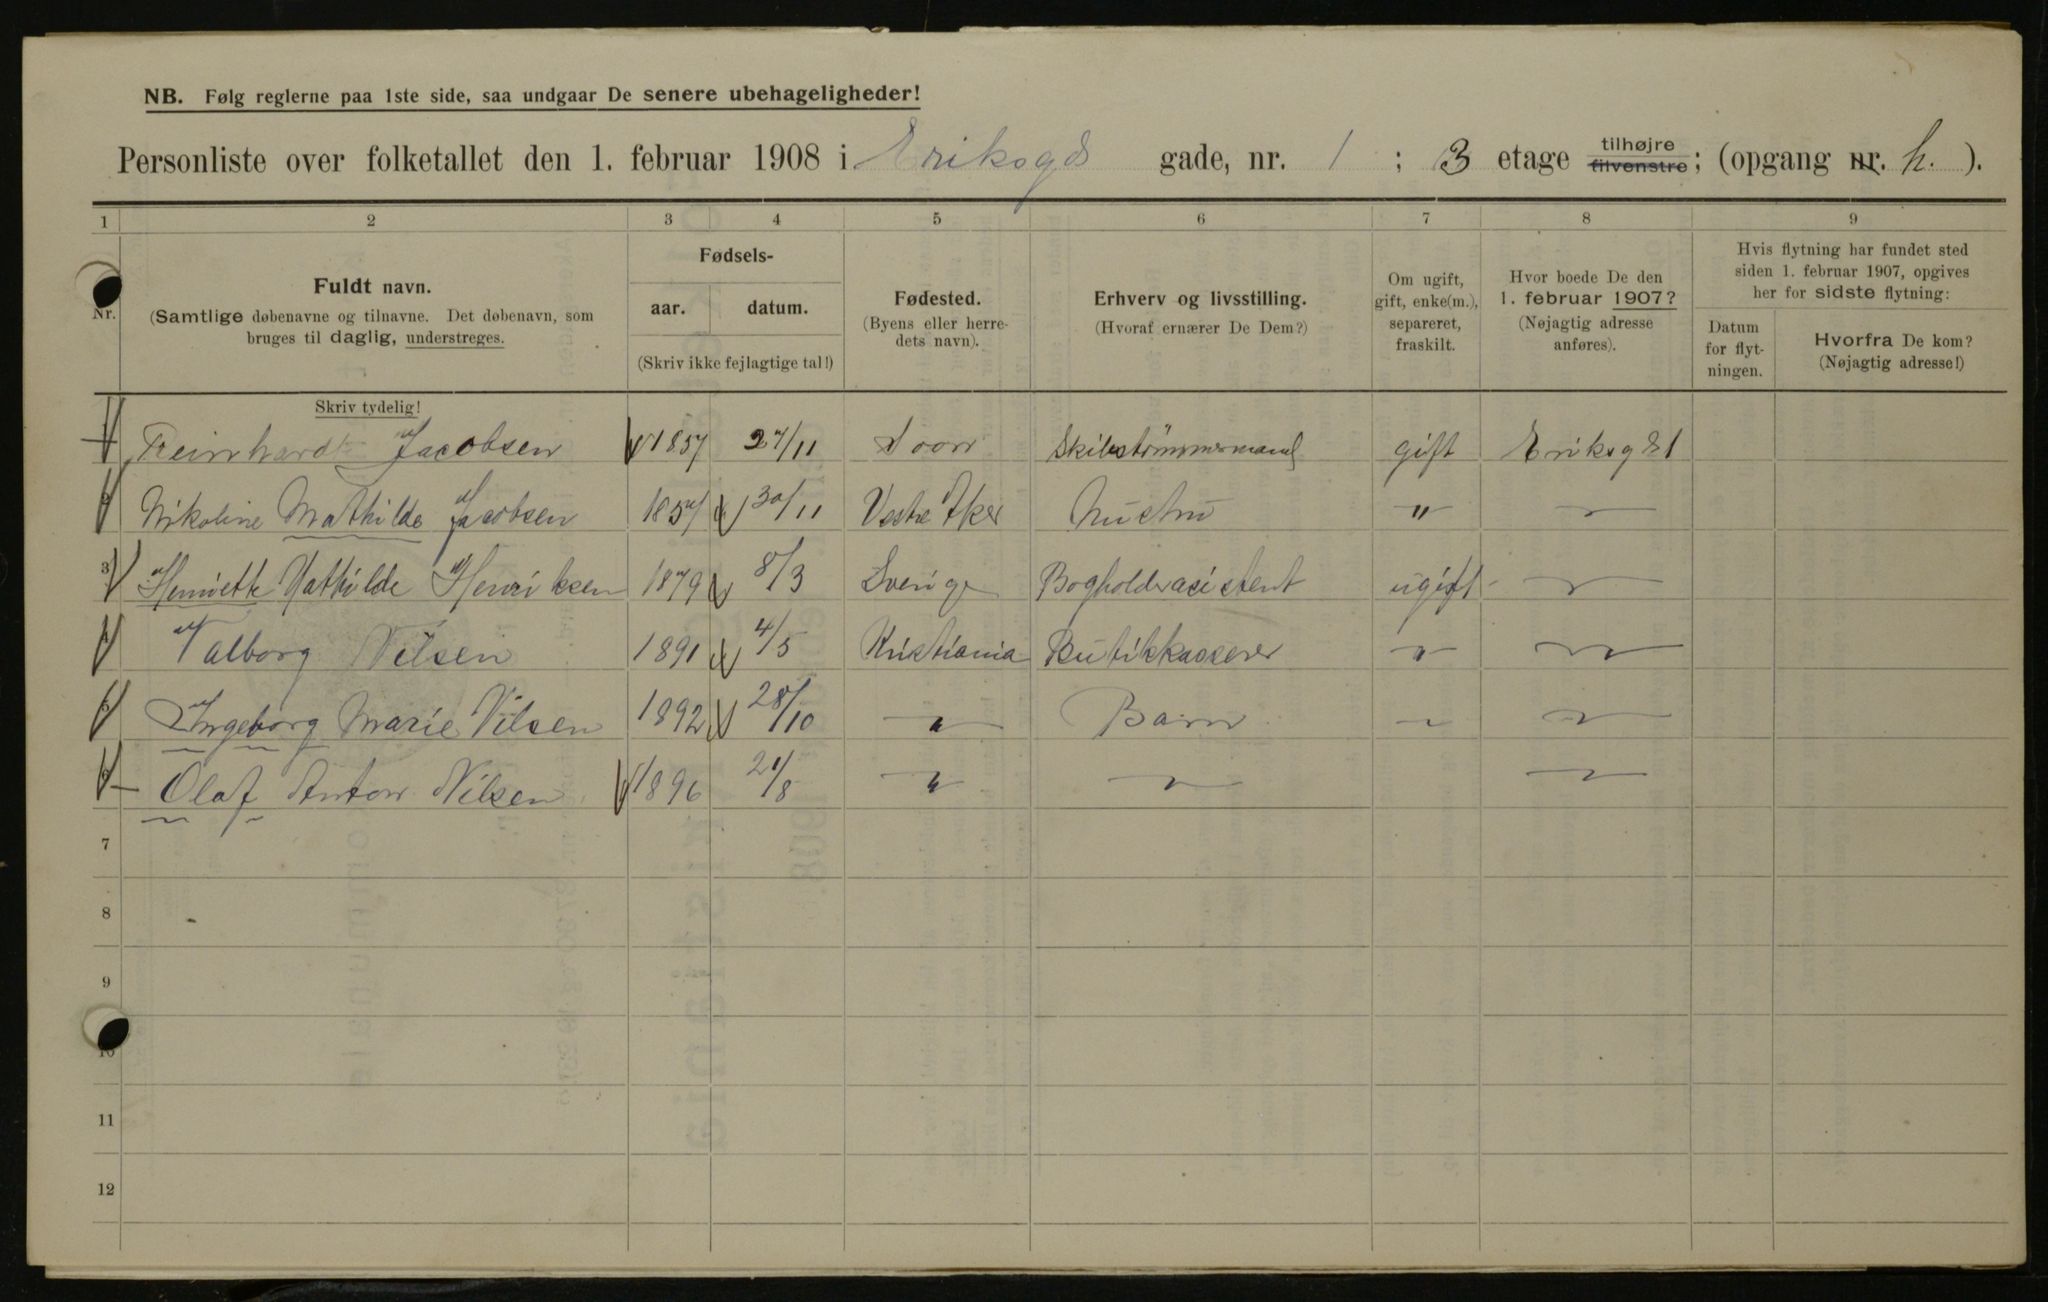 NB. Følg reglerne paa 1ste side, saa undgaar De senere ubehageligheder!
Personliste over folketallet den 1. februar 1908 i Eriksgd gade, nr. 1 ; 3 etage tilhøjre tilvenstre; (opgang nr. h. ).
1 2 3 4 5 6 7 8 9
Nr.
Fuldt navn.
(Samtlige døbenavne og tilnavne. Det døbenavn, som
bruges til daglig, understreges.
Skriv tydelig!
Fødsels-
aar. datum.
(Skriv ikke fejlagtige tal!)
Fødested.
(Byens eller herre-
dets navn).
Erhverv og livsstilling.
(Hvoraf ernærer De Dem?)
Om ugift,
gift, enke(m.),
separeret,
fraskilt.
Hvor boede De den
1. februar 1907?
(Nøjagtig adresse
anføres).
Hvis flytning har fundet sted
siden 1. februar 1907, opgives
her for sidste flytning:
Datum
for flyt-
ningen.
Hvorfra De kom?
(Nøjagtig adresse!)
Reinhardt Jacobsen 1857 27/11 Soon Skibstømmermand gift Eriksgd 1
Nikoline Mathilde Jacobsen 30/11 Vestre Aker Hustru " "
3 Henriette Mathilde Henriksen 1879 8/3 Sverige Bogholderasistent ugift "
Valborg Nilsen 1891 4/5 Kristiania Butikkasserer " "
5 Ingeborg Marie Nilsen 1892 28/10 " Barn " "
Olaf Anton Nilsen 1896 21/8 " " "
7
8
9
10
11
12